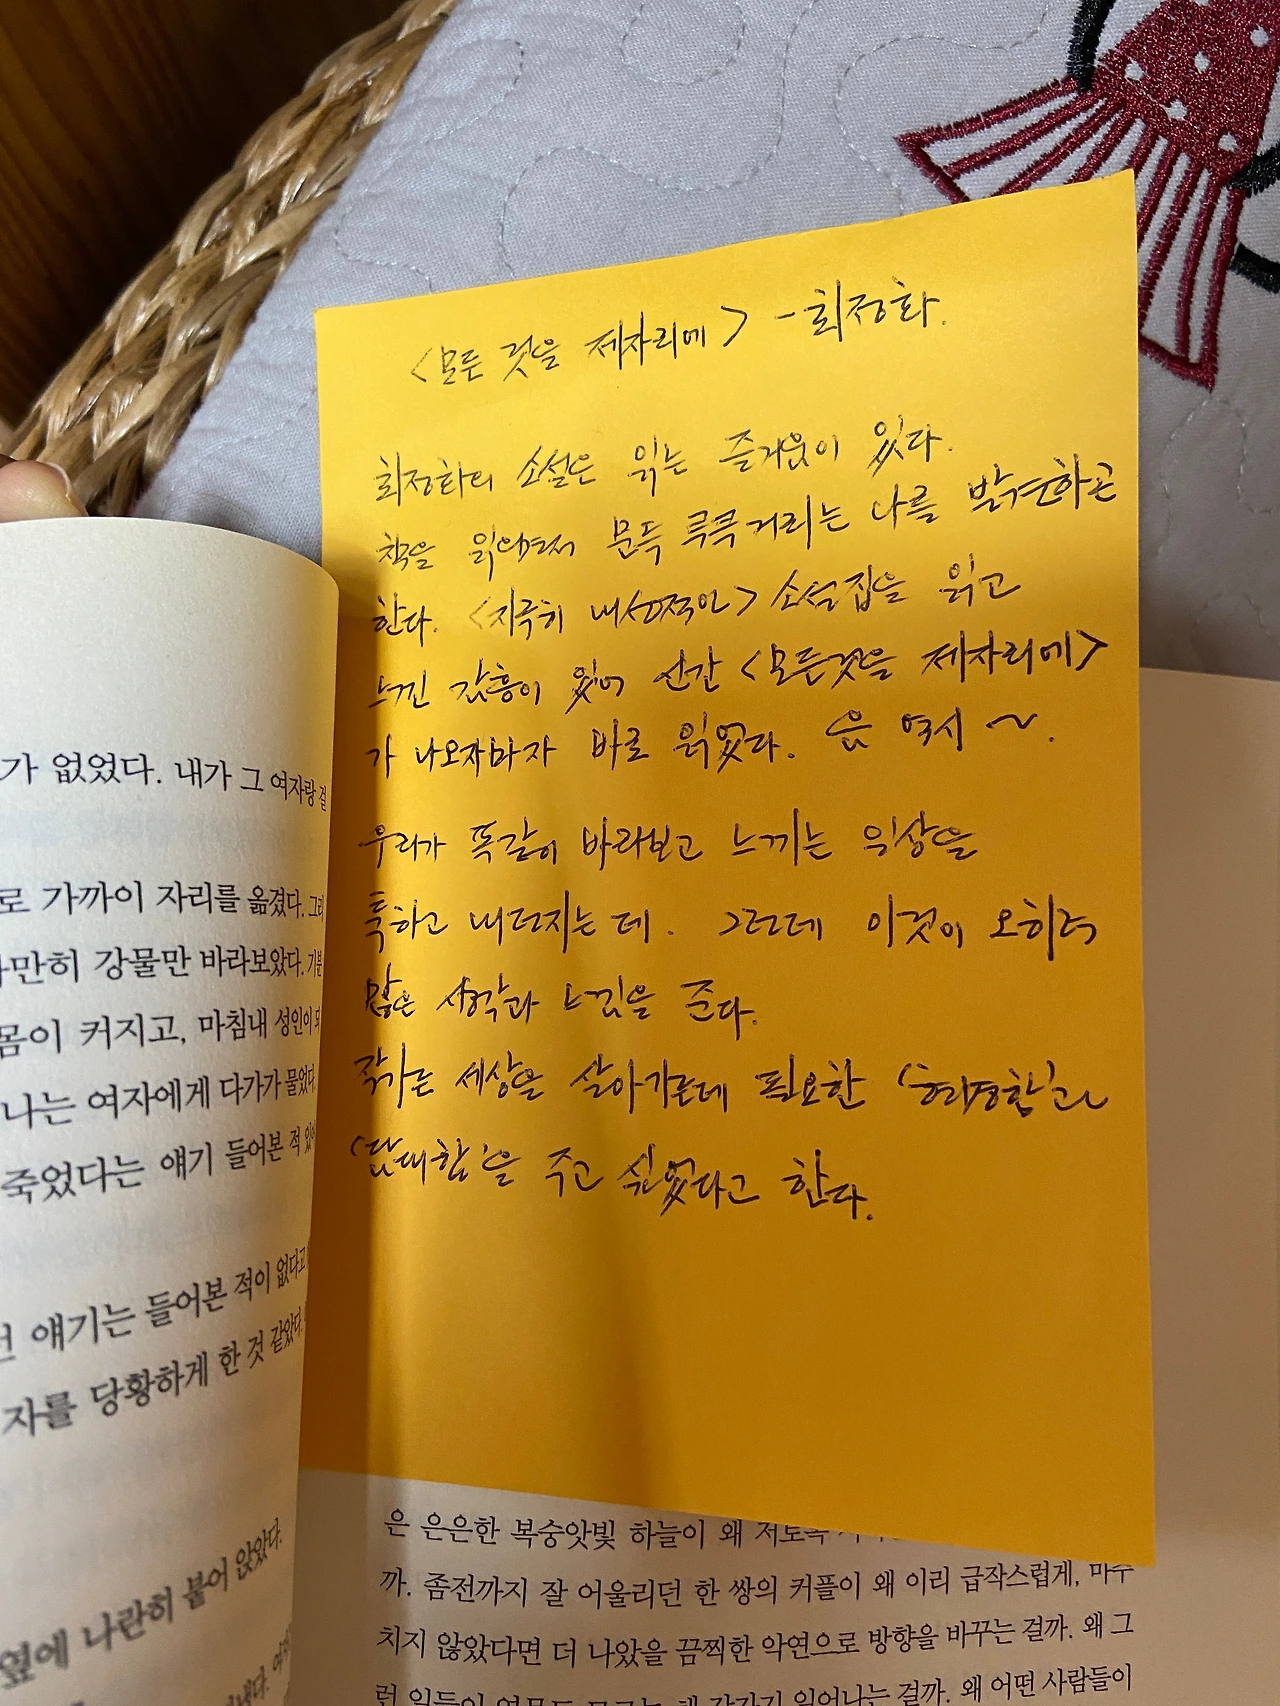 가 없었다. 내가 그 여자랑 걸
로 가까이 자리를 옮겼다. 그리
가만히 강물만 바라보았다. 기분
몸이 커지고, 마침내 성인이 되
나는 여자에게 다가가 물었다.
죽었다는 얘기 들어본 적 있
런 얘기는 들어본 적이 없다고
자를 당황하게 한 것 같았다.
옆에 나란히 붙어 앉았다.
<모든 것을 제자리에> - 최정화.
최정화의 소설은 읽는 즐거움이 있다.
책을 읽으면서 문득 쿡쿡거리는 나를 발견하곤
한다. <지극히 내성적인> 소설집을 읽고
느낀 감흥이 있어 신간 <모든것을 제자리에>
가 나오자마자 바로 읽었다. 음 역시 ~.
우리가 똑같이 바라보고 느끼는 일상을
툭하고 내던지는데. 그런데 이것이 오히려
많은 생각과 느낌을 준다.
작가는 세상을 살아가는데 필요한 '현명함'과
'담대함'을 주고 싶었다고 한다.
은 은은한 복숭앗빛 하늘이 왜 저토록
까. 좀전까지 잘 어울리던 한 쌍의 커플이 왜 이리 급작스럽게, 마주
치지 않았다면 더 나았을 끔찍한 악연으로 방향을 바꾸는 걸까. 왜 그
런 일들이 갑자기 일어나는 걸까. 왜 어떤 사람들이